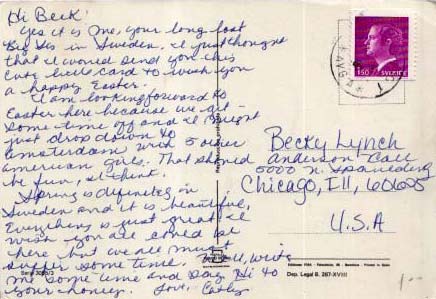 Hi Beck!
Yes it is me, your long lost
Big Sis in Sweden. I just thought
that I would send you this
cute little card to wish you
a happy Easter.
I am looking forward to
Easter here because we get
some time off and I might
just drop down to
amsterdam with 5 other
american girls. That should
be fun, I think.
Spring is definitely in
Sweden and it is beautiful,
Everything is just great. I
wish you all could be
here but we all must
suffer some time. write
me some time and say Hi to
your honey. Love, Cathy
150 SVERIGE
Becky Lynch
Anderson Hall
5000 N. Spaulding
Chicago, Ill, 60625
U.S.A
Dep. Legal B. 267-XVIII
Serie
1-